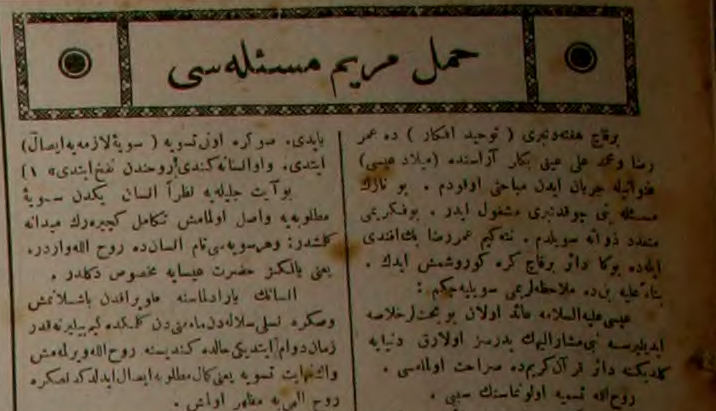 حمل مريم مسئله‌سى
برقاچ هفته‌دنبرى ( توحيد افكار ) ده عمر
رضا ومحمد على عينى بكلر آراسنده (ميلاد عيسى)
عنوانيله جريان ايدن مباحثى اوقودم . بو نازك
مسئله بنى چوقدنبرى مشغول ايدر . بوفكريمى
متعدد ذواته سويلدم . نته‌كيم عمر رضا بك افندى
ايله‌ده بوكا دائر برقاچ كره كوروشمش ايدك .
بناءً عليه بن‌ده ملاحظه‌لريمى سويليه‌جكم :
عيسى عليه‌السلامه عائد اولان بو بحثلر خلاصه
ايديليرسه نبى مشاراليهك پدرسز اولارق دنيايه
كلديكنه دائر قرآن كريم‌ده صراحت اولماسى .
روح‌الله تسميه اولونماسنك سببى .
ياپدى. صوكره اونى تسويه ( سويۀ لازمه‌يه ايصال)
ايتدى. واوانسانه كندى روحندن نفخ ايتدى» ١)
بوآيت جليله‌يه نظراً انسان يكدن سويۀ
مطلوبه‌يه واصل اولمامش تكامل كچيره‌رك ميدانه
كلمشدر: وهر سويه‌سى تام انسان‌ده روح الله واردر.
يعنى يالكز حضرت عيسايه مخصوص دكلدر .
انسانك يارادلماسنه چاموراقدن باشلانمش
وصكره نسلى سلاله‌دن ماءمهين‌دن كلمكده كيم بيلير نه‌قدر
زمان دوام ايتديكى حالده كنديسنه روح الله ويرلمه‌مش
واك نهايت تسويه يعنى كمال مطلوبه ايصال ايدلدكدنصكره
روح الهى‌يه مظهر اولمش .